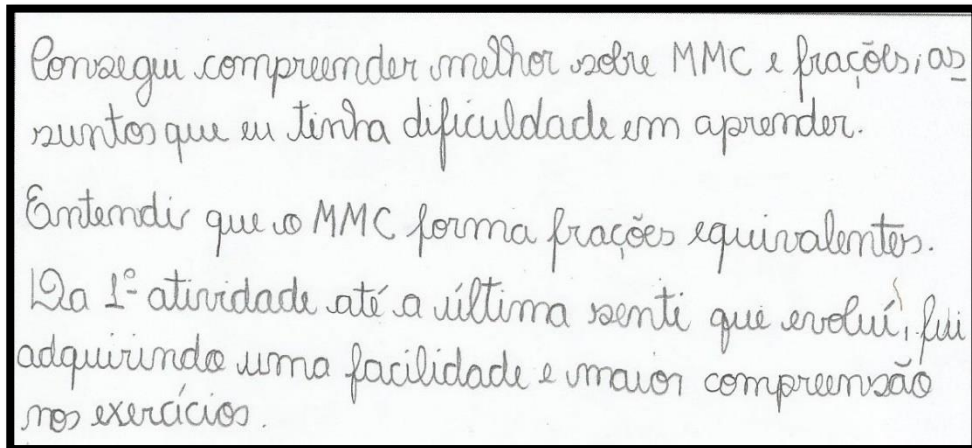 Consegui compreender melhor sobre MMC e frações, as
suntos que eu tinha dificuldade em aprender.
Entendi que o MMC forma frações equivalentes.
Da 1ª atividade até a última senti que evoluí, fui
adquirindo uma facilidade e maior compreensão
nos exercícios.